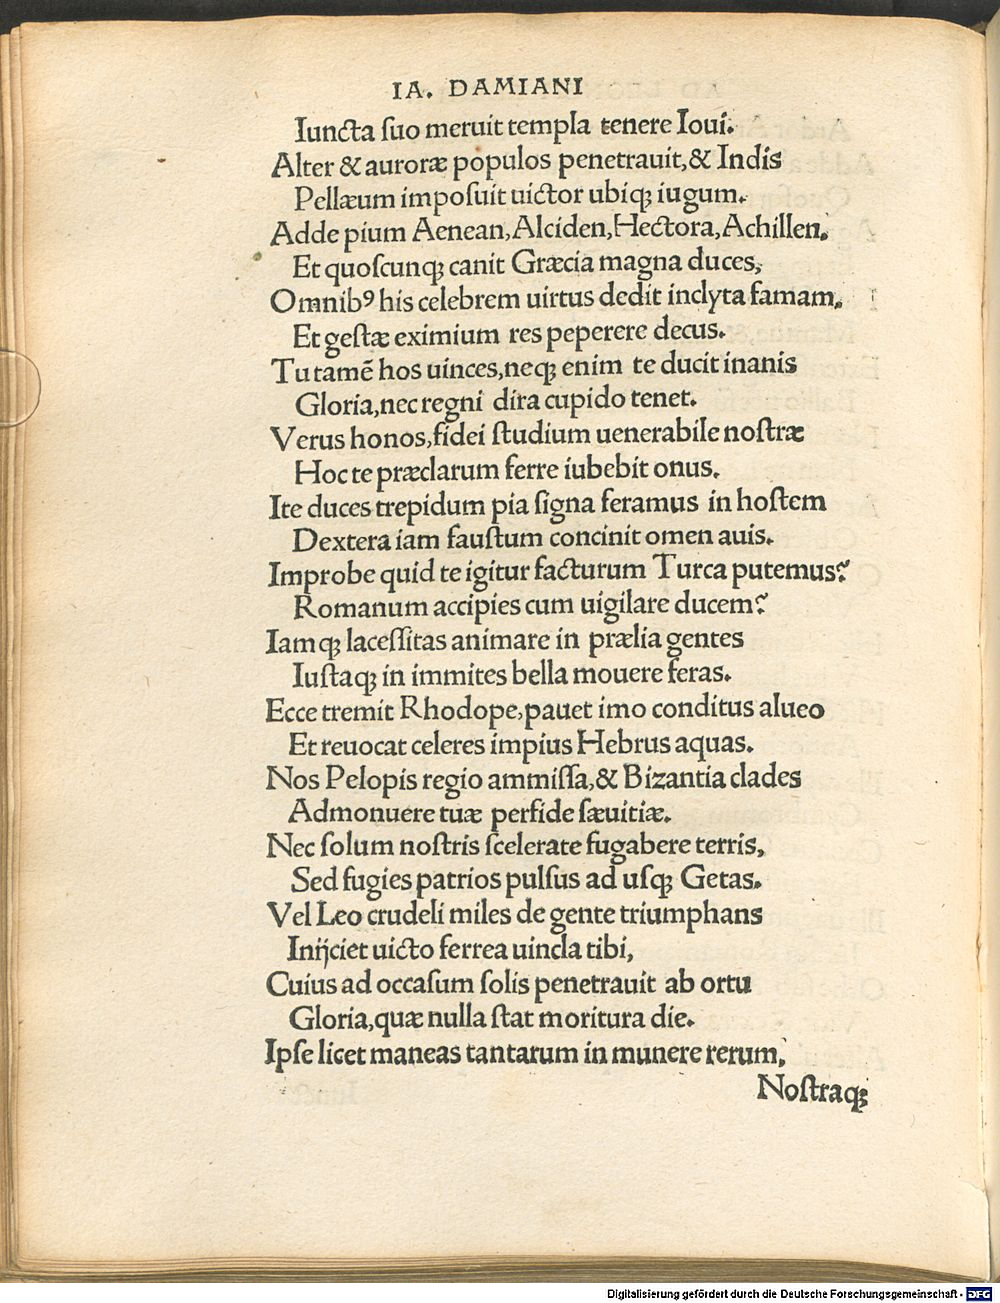 IA. DAMIANI
Iuncta ſuo meruit templa tenere Ioui.
Alter & auroræ populos penetrauit,& Indis
Pellæum impoſuit uictor ubiqꝫ iugum.
Adde pium Aenean,Alciden,Hectora,Achillen.
Et quoſcunqꝫ canit Græcia magna duces,
Omnibꝰ his celebrem uirtus dedit inclyta famam.
Et geſtæ eximium res peperere decus.
Tu tamẽ hos uinces,neqꝫ enim te ducit inanis
Gloria,nec regni dira cupido tenet.
Verus honos,fidei ſtudium uenerabile noſtræ
Hoc te præclarum ferre iubebit onus.
Ite duces trepidum pia ſigna feramus in hoſtem
Dextera iam fauſtum concinit omen auis.
Improbe quid te igitur facturum Turca putemus?
Romanum accipies cum uigilare ducem?
Iamqꝫ laceſſitas animare in prælia gentes
Iuſtaqꝫ in immites bella mouere feras.
Ecce tremit Rhodope,pauet imo conditus alueo
Et reuocat celeres impius Hebrus aquas.
Nos Pelopis regio ammiſſa,& Bizantia clades
Admonuere tuæ perfide ſæuitiæ.
Nec ſolum noſtris ſcelerate fugabere terris,
Sed fugies patrios pulſus ad uſqꝫ Getas.
Vel Leo crudeli miles de gente triumphans
Inijciet uicto ferrea uincla tibi,
Cuius ad occaſum ſolis penetrauit ab ortu
Gloria,quæ nulla ſtat moritura die.
Ipſe licet maneas tantarum in munere rerum,
Noſtraqꝫ
Digitalisierung gefördert durch die Deutsche Forschungsgemeinschaft - DFG